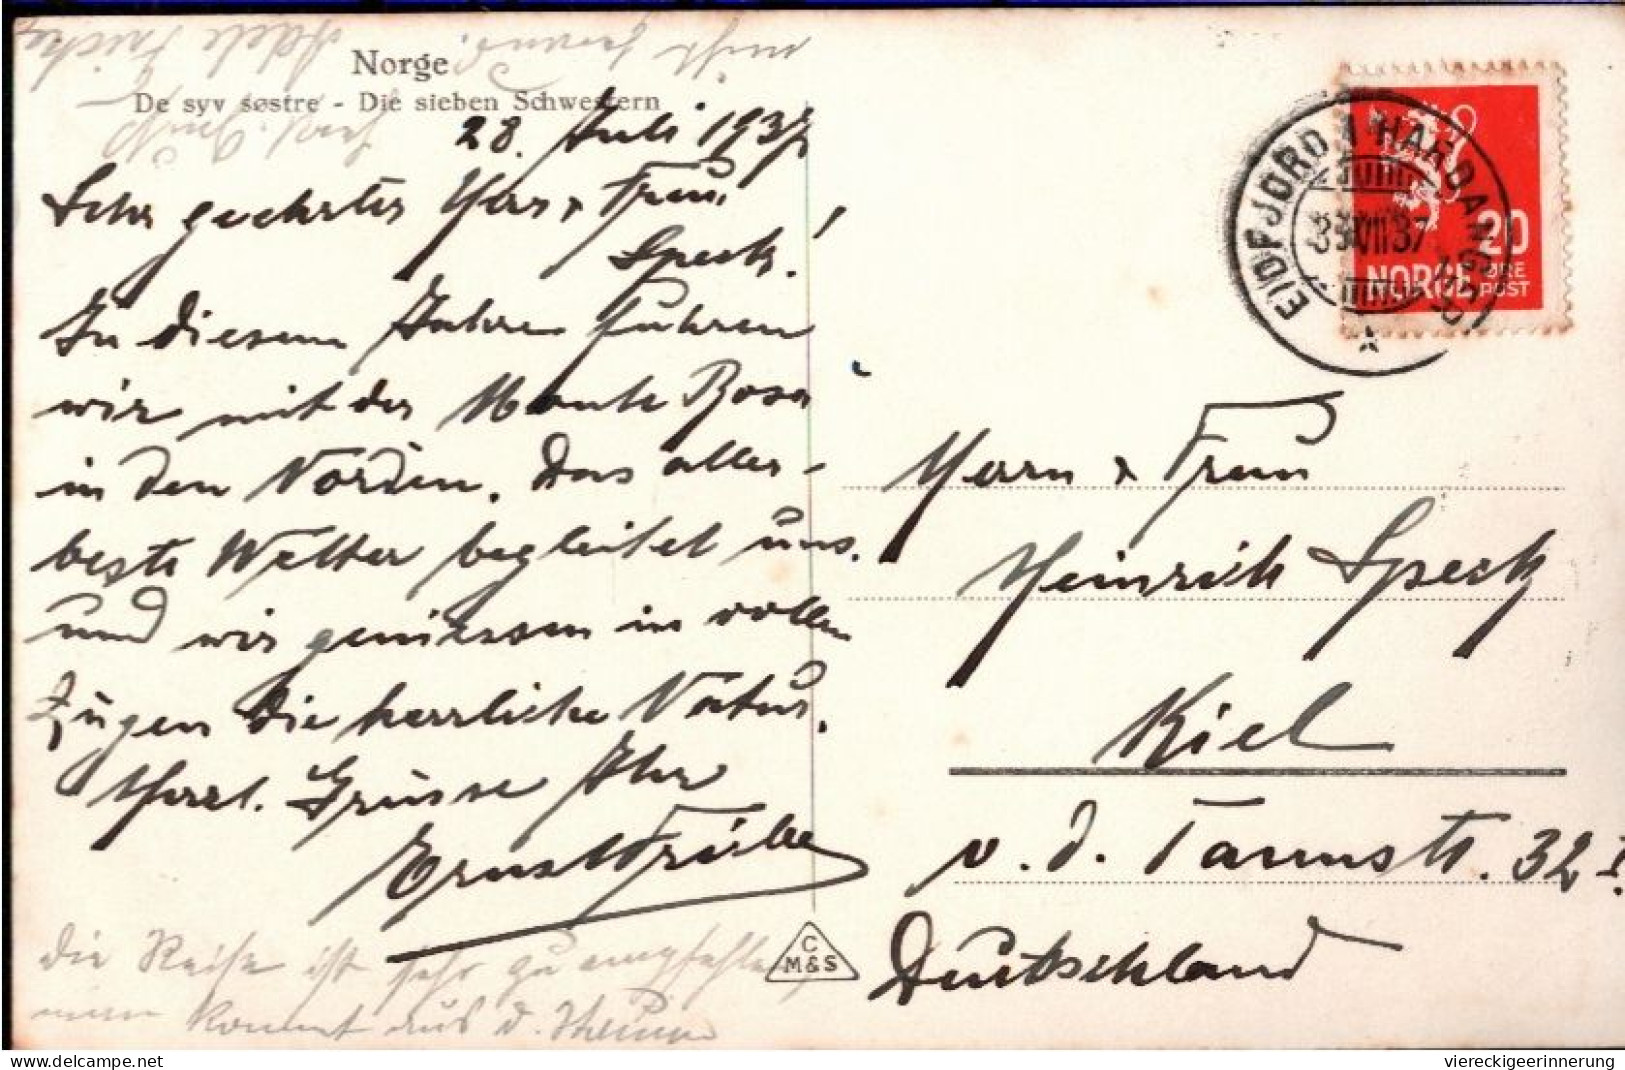 Norge
De syv søstre - Die sieben Schwestern
28. Juli 1937
Sehr geehrter Herr & Frau
Speck!
In diesem Jahre fuhren
wir mit der Monte Rosa
in den Norden. Das aller-
beste Wetter begleitet uns.
und wir geniessen in vollen
Zügen die herrliche Natur.
Herzl. Grüsse Ihr
Ernst
die Reise ist sehr zu empfehlen
man kommt aus d.
nicht
Adele
C
M&S
EIDFJORD I HARDANGER
VII 37
20
NORGE ØRE
POST
Herrn & Frau
Heinrich Speck
Kiel
v. d. Tannstr. 32 I.
Deutschland
delcampe.net
viereckigeerinnerung